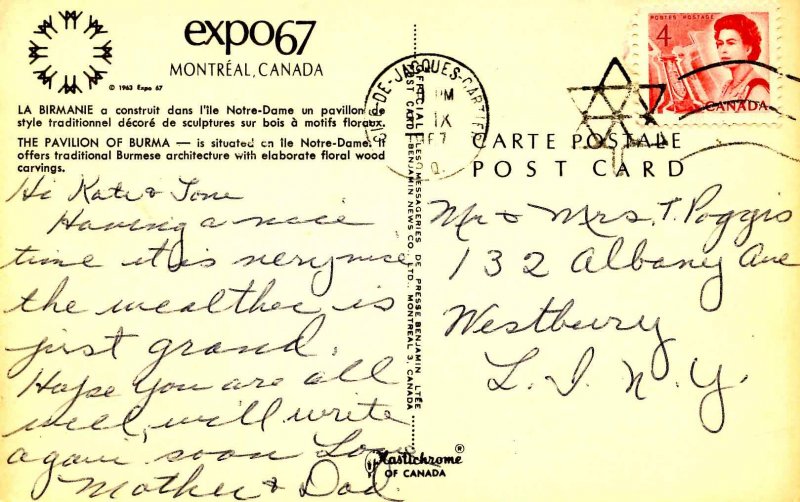 expo67
MONTRÉAL, CANADA
© 1963 Expo 67
LA BIRMANIE a construit dans l'île Notre-Dame un pavillon de
style traditionnel décoré de sculptures sur bois à motifs floraux.
THE PAVILION OF BURMA — is situated on Ile Notre-Dame. It
offers traditional Burmese architecture with elaborate floral wood
carvings.
Hi Kate & Tone
Having a nice
time it is very nice
the weather is
just grand.
Hope you are all
well, will write
again soon Love
Mother & Dad
OFFICIAL LES MESSAGERIES DE PRESSE BENJAMIN LTÉE
POST CARD BENJAMIN NEWS CO. LTD., MONTREAL 3, CANADA
Plastichrome®
OF CANADA
-DE-JACQUES-CARTIER
PM
IX
67
Q.
POSTES POSTAGE
4
CANADA
CARTE POSTALE
POST CARD
Mr & Mrs. T. Poggis
132 Albany Ave
Westbury
L. I. N. Y.